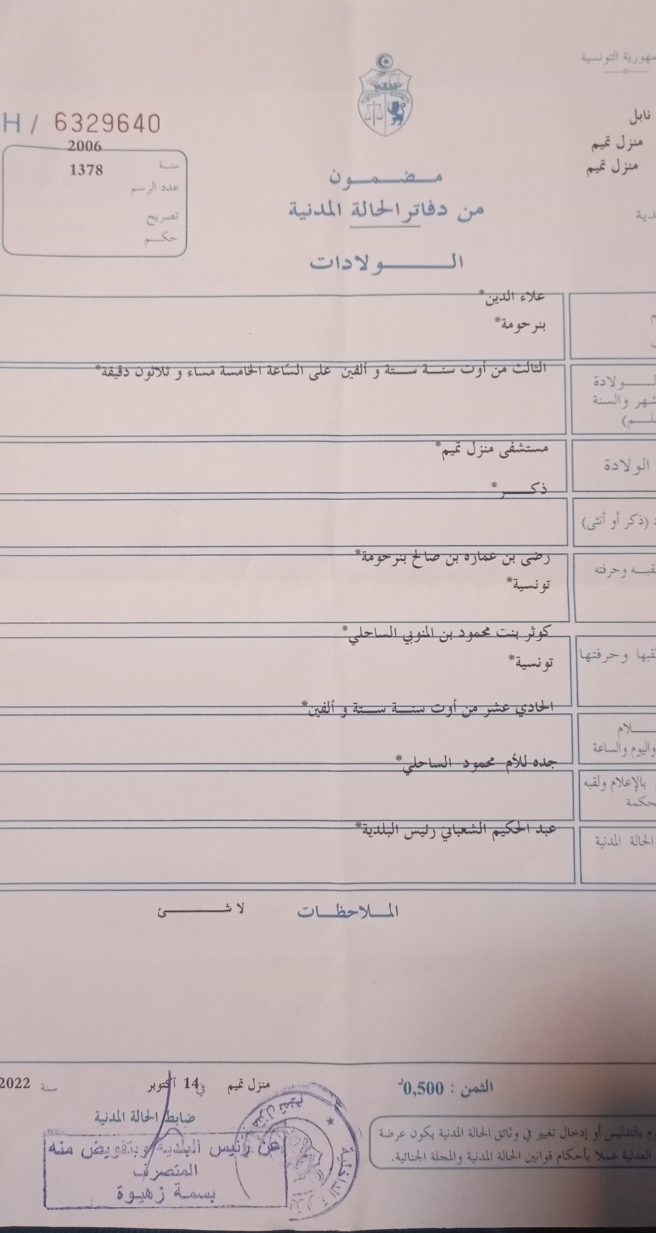 التونسية
نابل
H / 6329640
منزل تميم
2006
سنة
منزل تميم
1378
عدد الرسم
مضمون
من دفاتر الحالة المدنية
تصريح
حكم
الولادات
علاء الدين*
بنرحومة*
الثالث من أوت سنة ستة و ألفين على الساعة الخامسة مساء و ثلاثون دقيقة*
والسنة
مستشفى منزل تميم*
الولادة
ذكر*
(ذكر أو أنثى)
رضى بن عمارة بن صالح بنرحومة*
وحرفته
تونسية*
كوثر بنت محمود بن المنوبي الساحلي*
وحرفتها
تونسية*
الحادي عشر من أوت سنة ستة و ألفين*
واليوم والساعة
جده للأم محمود الساحلي*
بالإعلام ولقبه
عبد الحكيم الشعباني رئيس البلدية*
الحالة المدنية
الملاحظات
لا شئ
منزل تميم في 14 أكتوبر سنة 2022
الثمن : 0,500د
ضابط الحالة المدنية
بالتدليس أو إدخال تغيير في وثائق الحالة المدنية يكون عرضة
العدلية عملا بأحكام قوانين الحالة المدنية والمجلة الجنائية.
عن رئيس البلدية وبتفويض منه
المتصرف
بسمة زهيوة